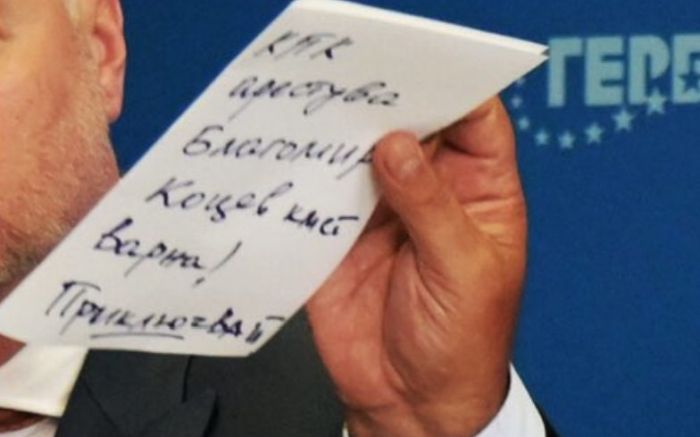 КПК
арестува
Благомир
Коцев кмет
Варна!
Приключвай
ГЕРБ